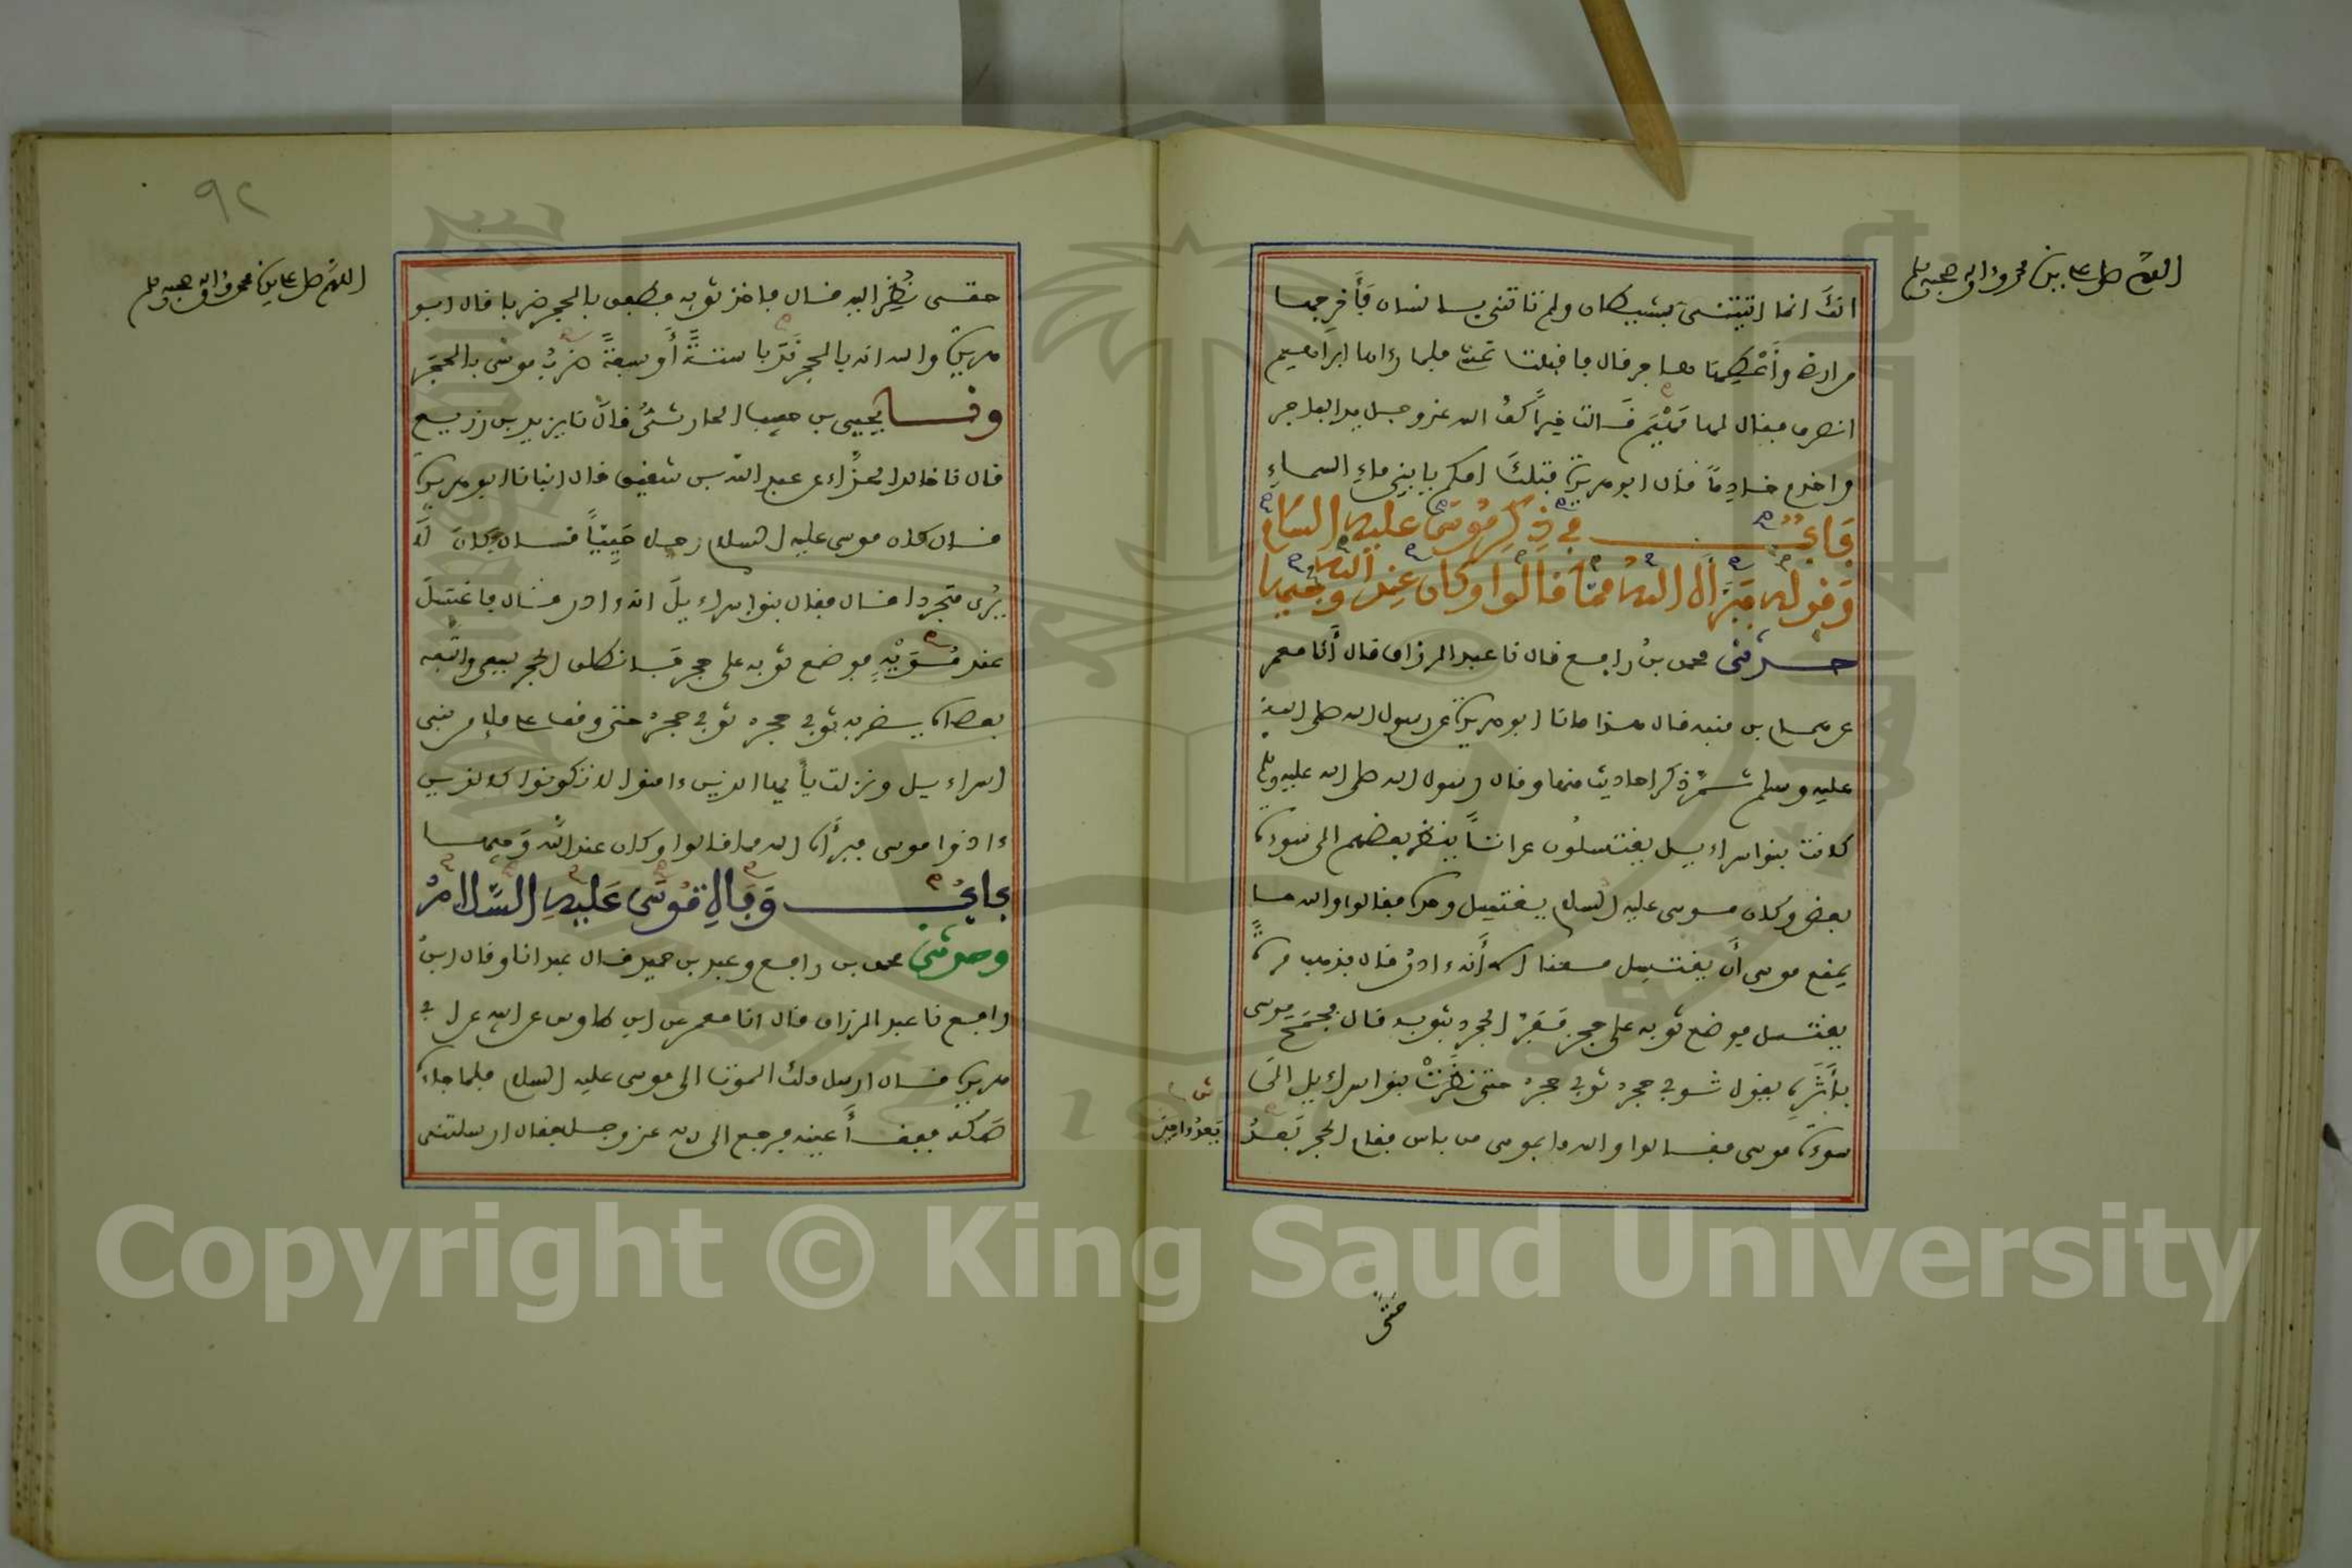 اللهم صل على سيدنا محمد وءاله وصحبه وسلم
انك انما اتيتنى بشيطان ولم تاتنى بانسان فأخرجها
من ارضى وأعطها هاجر قال فاقبلت تمشى فلما رءاها ابراهيم
انصرف فقال لها مهيم قالت خيراً كف الله عز وجل يد الفاجر
واخدم خادماً قال ابو هريرة فتلك امكم يا بنى ماء السماء
باب فى ذكر موسى عليه السلام
وقوله فبرأه الله مما قالوا وكان عند الله وجيها
حدثنى محمد بن رافع قال نا عبد الرزاق قال أنا معمر
عن همام بن منبه قال هذا ما نا ابو هريرة عن رسول الله صلى الله
عليه وسلم فذكر احاديث منها وقال رسول الله صلى الله عليه وسلم
كانت بنوا اسراءيل يغتسلون عراتاً ينظر بعضهم الى سوءة
بعض وكان موسى عليه السلام يغتسل وحده فقالوا والله ما
يمنع موسى أن يغتسل معنا الا أنه ءادر قال فذهب مرةً
يغتسل فوضع ثوبه على حجر ففر الحجر بثوبه قال فجمح موسى
بأثره يقول ثوبى حجر ثوبى حجر حتى نظرت بنوا اسراءيل الى
سوءة موسى فقالوا والله ما بموسى من باس فقام الحجر بعد
حتى
اللهم صل على سيدنا محمد وءاله وصحبه وسلم
٩٢
حقى نظر اليه قال فاخذ ثوبه فطفق بالحجر ضربا قال ابو
هريرة والله انه بالحجر ندبا ستةً أو سبعةً ضرب موسى بالحجر
ونا يحيى بن حبيب الحارثى قال نا يزيد بن زريع
قال نا خالد الحذاء عن عبد الله بن شقيق قال انبانا ابو هريرة
قال كان موسى عليه السلام رجلا حييياً قال فكان لا
يرى متجردا قال فقال بنوا اسراءيل انه ءادر قال فاغتسل
عند مويه فوضع ثوبه على حجر فانطلق الحجر يسعى واتبعه
بعصاه يضربه ثوبى حجر ثوبى حجر حتى وقف على ملإ من بنى
اسراءيل ونزلت يأيها الذين ءامنوا لا تكونوا كالذين
ءاذوا موسى فبرأه الله مما قالوا وكان عند الله وجيها
باب وفاة موسى عليه السلام
وحدثنى محمد بن رافع وعبد بن حميد قال عبد انا وقال ابن
رافع نا عبد الرزاق قال انا معمر عن ابن طاوس عن ابيه عن ابى
هريرة قال ارسل ملك الموت الى موسى عليه السلام فلما جاءه
صكه ففقأ عينه فرجع الى ربه عز وجل فقال ارسلتنى